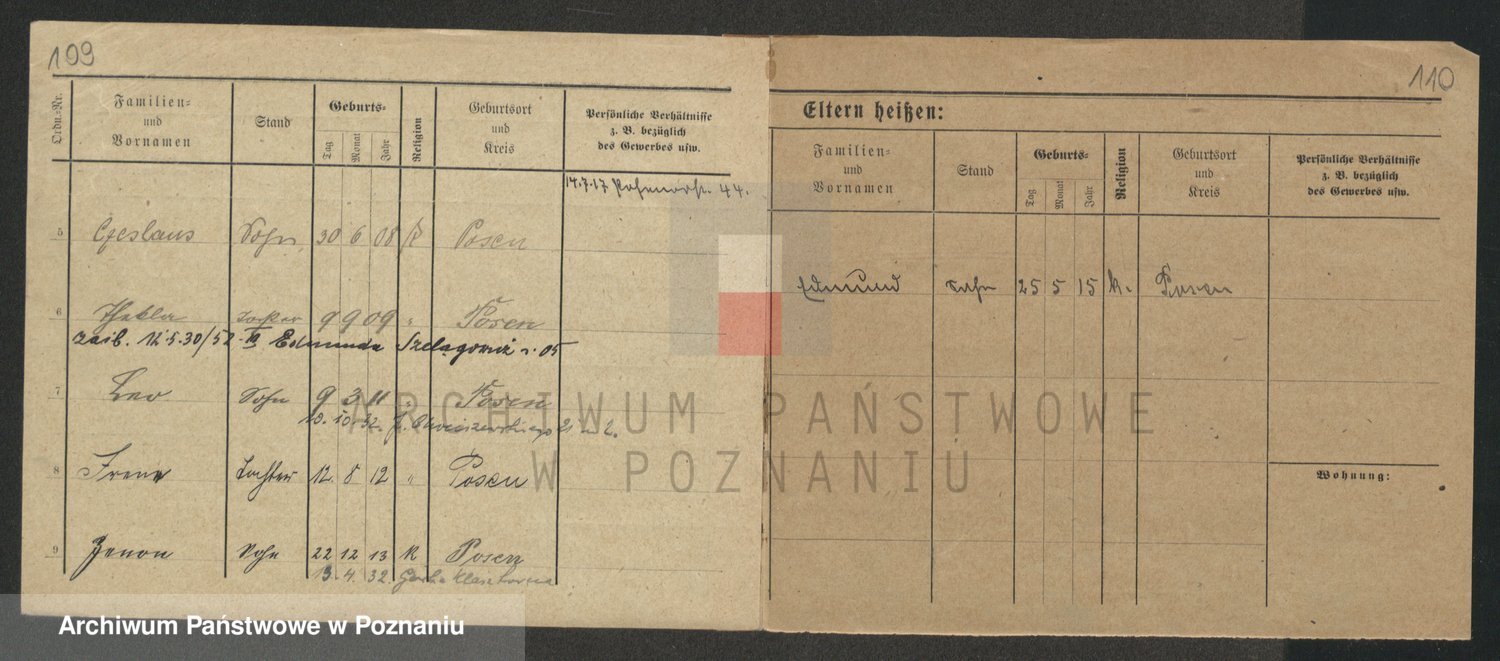 109
Ordn.-Nr.
Familien-
und
Vornamen
Stand
Geburts-
Tag
Monat
Jahr
Religion
Geburtsort
und
Kreis
Persönliche Verhältnisse
z. B. bezüglich
des Gewerbes usw.
14.7.17 44.
5 Czeslaus Sohn 30 6 08 K Posen
6 Thekla Tochter 9 9 09 " Posen
12.5.30/52 Edmunda 05
7 Leo Sohn 9 3 11 " Posen
10. 32. 2.
8 Irene Tochter 12. 8 12 " Posen
9 Zenon Sohn 22 12 13 K Posen
13. 4. 32.
110
Eltern heißen:
Familien-
und
Vornamen
Stand
Geburts-
Tag
Monat
Jahr
Religion
Geburtsort
und
Kreis
Persönliche Verhältnisse
z. B. bezüglich
des Gewerbes usw.
Edmund Sohn 25 5 15 K. Posen
Wohnung:
ARCHIWUM PAŃSTWOWE
W POZNANIU
Archiwum Państwowe w Poznaniu